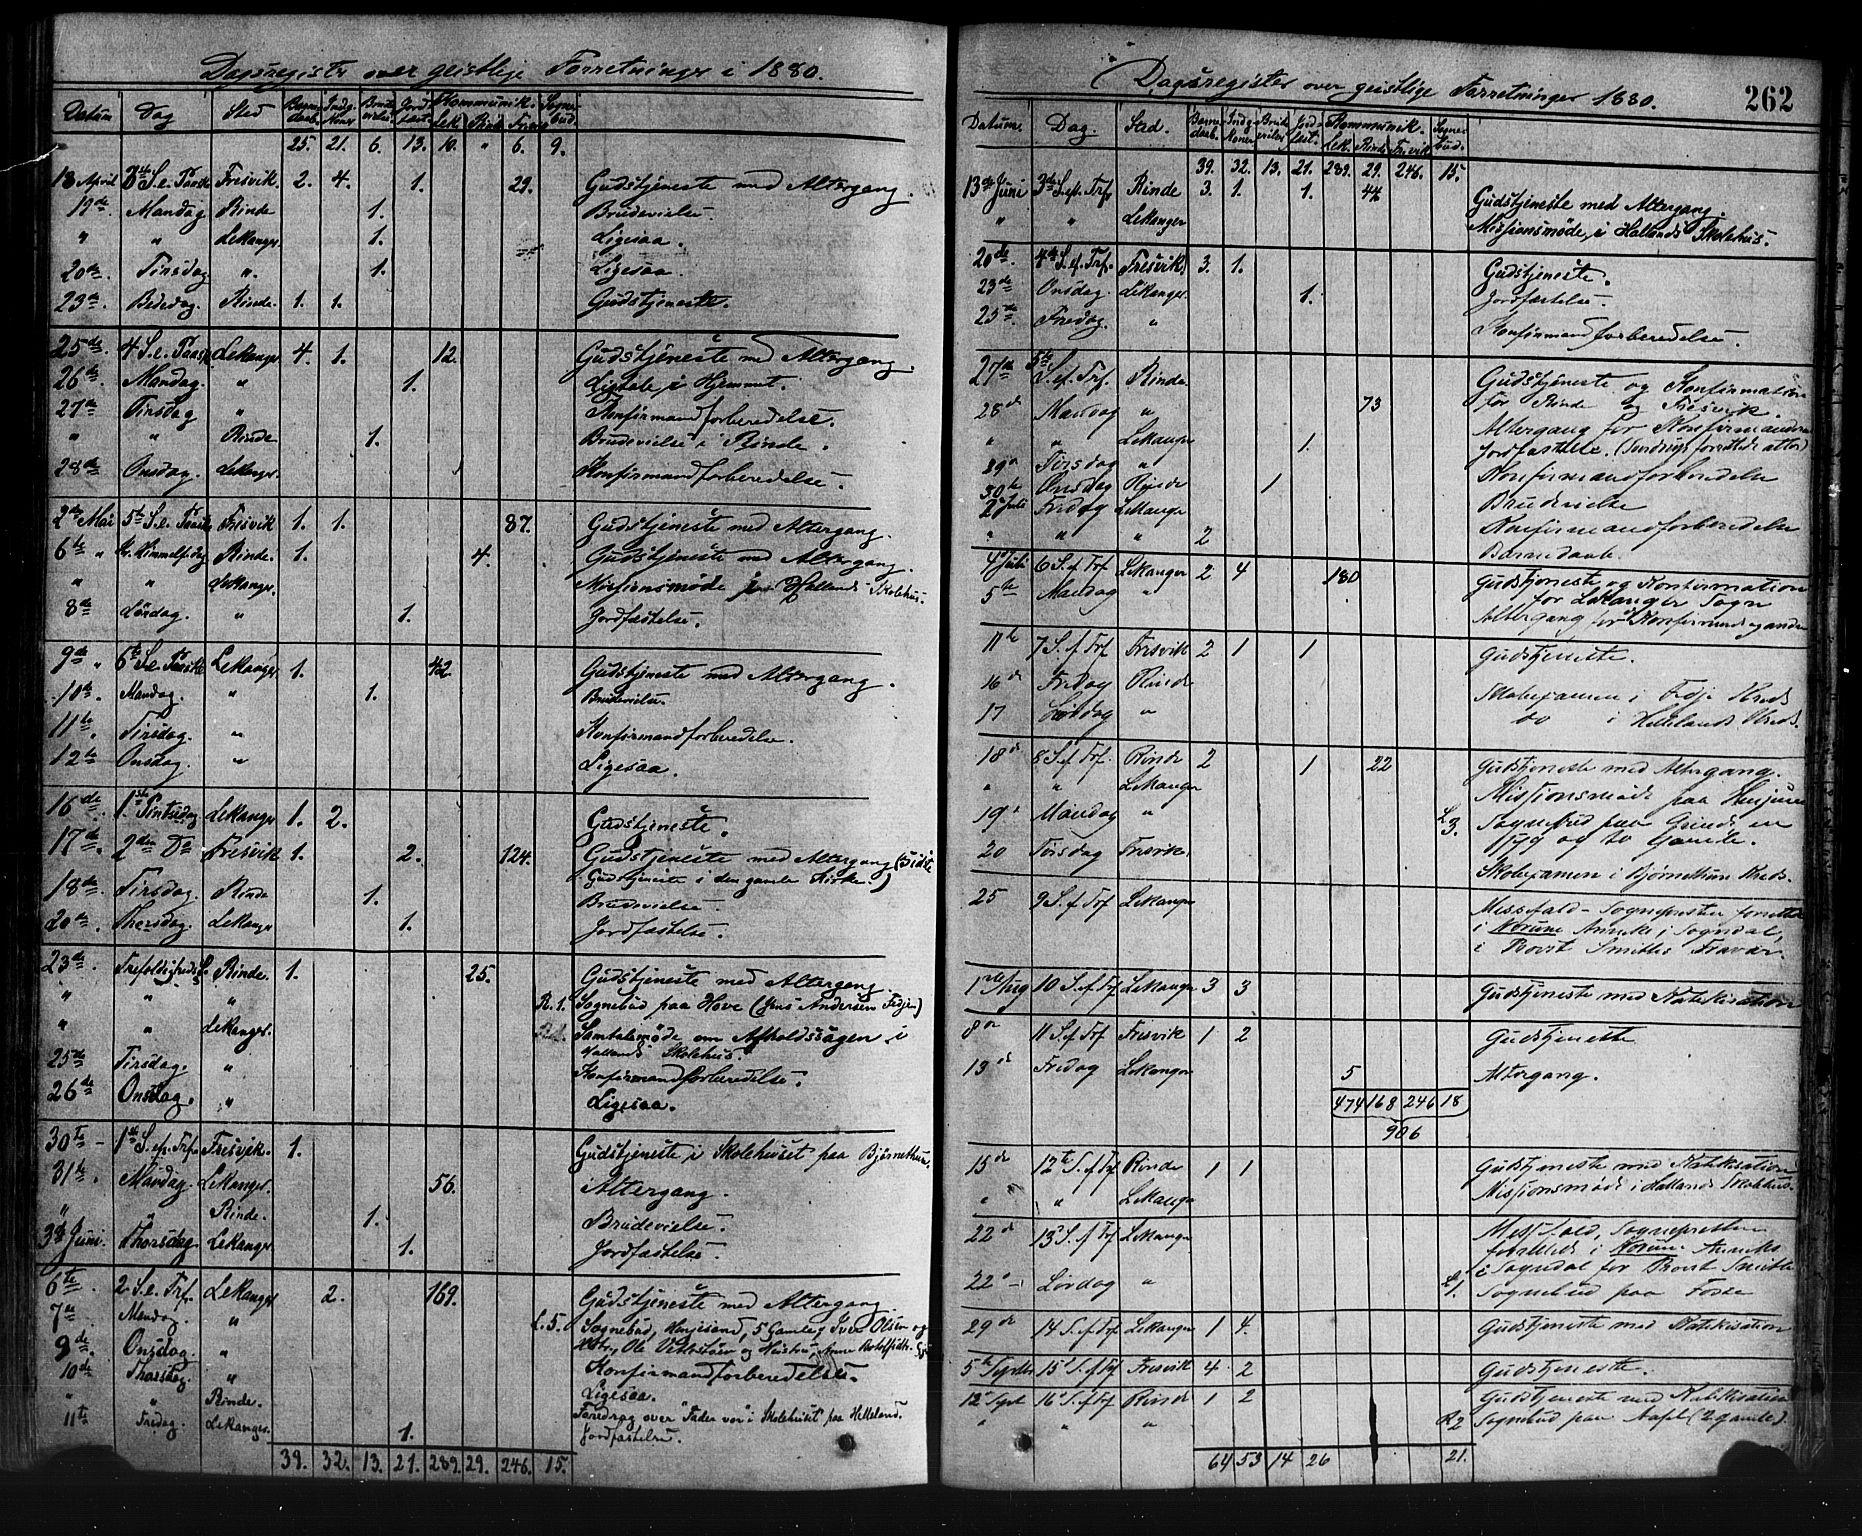 Dagsregister over geistlige Forretninger i 1880.
Datum Dag Sted Barne- daab. Indg. Koner Brude- vielser Jord- fæst. Kommunik. Lek. Rinde Fresv. Sogne- bud.
25. 21. 6. 13. 10. " 6. 9.
18 April 3die S. e. Paaske Fresvik. 2. 4. 1. 29. Gudstjeneste med Altergang.
19de Mandag Rinde 1. Brudevielse.
" " Lekanger. 1. Ligesaa.
20de Tirsdag ". 1. Ligesaa.
23de Bededag Rinde. 1. 1. Gudstjeneste.
25de 4 S. e. Paaske Lekanger 4. 1. 12. Gudstjeneste med Altergang.
26de Mandag. " 1. Ligtale i Hjemmet.
27de Tirsdag " Konfirmandforberedelse.
" " Rinde 1. Brudevielse i Rinde.
28de Onsdag. Lekanger. Konfirmandforberedelse.
2den Mai 5te S. e. Paaske Fresvik 1. 1. 87. Gudstjeneste med Altergang.
6te " Kr. Himmelf.dag Rinde. 1. 4. Gudstjeneste med Altergang.
" " Lekanger. Missionsmøde paa Hallands Skolehus.
8de Lørdag. " 1. Jordfæstelse.
9de " 6te S. e. Paaske Lekanger 1. 42 Gudstjeneste med Altergang.
10de Mandag. " 1. Brudevielse.
11te Tirsdag. " Konfirmandforberedelse.
12te Onsdag. " Ligesaa.
16de 1ste Pintsedag Lekanger 1. 2. Gudstjeneste.
17de 2den Do Fresvik 1. 2. 124. Gudstjeneste med Altergang (Sidste
Gudstjeneste i den gamle Kirke.)
18de Tirsdag. Rinde 1. Brudevielse.
20de Thorsdag. Lekanger 1. Jordfæstelse.
23de Trefoldigheds S. Rinde. 1. 25. Gudstjeneste med Altergang.
" " " R. 1. Sognebud paa Hove (Jens Andersen Fedje)
" " Lekanger. Samtalemøde om Afholdssagen i
Hallands Skolehus.
25de Tirsdag. " Konfirmandforberedelse.
26de Onsdag. " Ligesaa.
30te 1ste S. ef. Trf. Fresvik. 1. Gudstjeneste i Skolehuset paa Bjørnethun.
31te Mandag. Lekanger. 56. Altergang.
" Rinde. 1. Brudevielse.
3die Juni. Thorsdag Lekanger 1. Jordfæstelse.
6te 2 S. e. Trf. Lekanger 2. 169. Gudstjeneste med Altergang.
7de Mandag. " L. 5. Sognebud, Henjesand, 5 Gamle, Iver Olsen og
9de Onsdag. " Hstr, Ole og Hustru, Anne
10de Thorsdag. " Konfirmandforberedelse.
" " Rinde. Ligesaa.
Foredrag over "Fader vor" i Skolehuset paa Helleland.
11te Fredag. Lekanger. 1. Jordfæstelse.
39. 32. 13. 21. 289. 29. 246. 15.
Dagsregister over geistlige Forretninger 1880.
262
Datum. Dag. Sted. Barne- daab. Indg. Koner Brude- vielser Jord- fæst. Kommunik. Lek. Rinde Fresvik Sogne- bud.
39. 32. 13. 21. 289. 29. 246. 15.
13de Juni 3die S. ef. Trf. Rinde 3. 1. 1. 44 Gudstjeneste med Altergang.
" " Lekanger Missionsmøde, i Hallands Skolehus.
20de 4de S. ef. Trf. Fresvik 3. 1. Gudstjeneste.
23de Onsdag. Lekanger. 1. Jordfæstelse.
25de Fredag. " Konfirmandforberedelse.
27de 5te S. ef. Trf. Rinde. Gudstjeneste og Konfirmation
for Rinde og Fresvik.
28de Mandag " 73 Altergang for Konfirmanderne
" " Lekanger 1. Jordfæstelse.
29de Tirsdag " Konfirmandforberedelse
30te Onsdag Rinde 1 Brudvielse
2den Juli Fredag Lekanger Konfirmandforberedelse
" " " 2 Barnedaab.
4de Juli 6 S. ef. Trf Lekanger 2 4 180 Gudstjeneste og Konfirmation
for Lekanger Sogn
5te Mandag " Altergang for Konfirmerede og andre
11te 7 S. ef Trf Fresvik 2 1 1 Gudstjeneste.
16de Fredag Rinde Skolexamen i Fedje Kreds
17 Lørdag " Do i Hellelands Kreds.
18de 8 S. ef Trf. Rinde 2 1 22 Gudstjeneste med Altergang.
" " Lekanger Missionsmøde paa Henjum
19de Mandag " L 3. Sognebud paa Grinde en
syg og to Gamle.
20 Tirsdag Fresvik. Skolexamen i Bjørnethun Kreds.
25 9 S. ef Trf Lekanger Messefald - Sognepresten forrettede
i Norum Annex i Sogndal,
i Provst Smitts Fravær.
1ste Aug 10 S. ef Trf Lekanger 3 3 Gudstjeneste med Katekisation
8de 11 S. ef Trf Fresvik 1 2 Gudstjeneste
13de Fredag Lekanger 5 Altergang.
474 168 246 18
906
15de 12te S. ef Trf Rinde 1 1 Gudstjeneste med Katekisation
" " Lekanger Missionsmøde i Hallands Skolehus.
22de 13de S. ef Trf Lekanger Messefald, Sognepresten
forrettede i Norum Annex
i Sogndal for Provst Smitt
22de Lørdag " L 1. Sognebud paa Fosse
29de 14 S. ef Trf Lekanger 1 4. Gudstjeneste med Katekisation
5te Septbr 15de S. ef Trf Fresvik 4 2 Gudstjeneste.
12te Sept 16de S. ef Trf Rinde 1 2 Gudstjeneste med Katekisation
" " " R 2 Sognebud paa (2 gamle).
64 53 14 26 21.